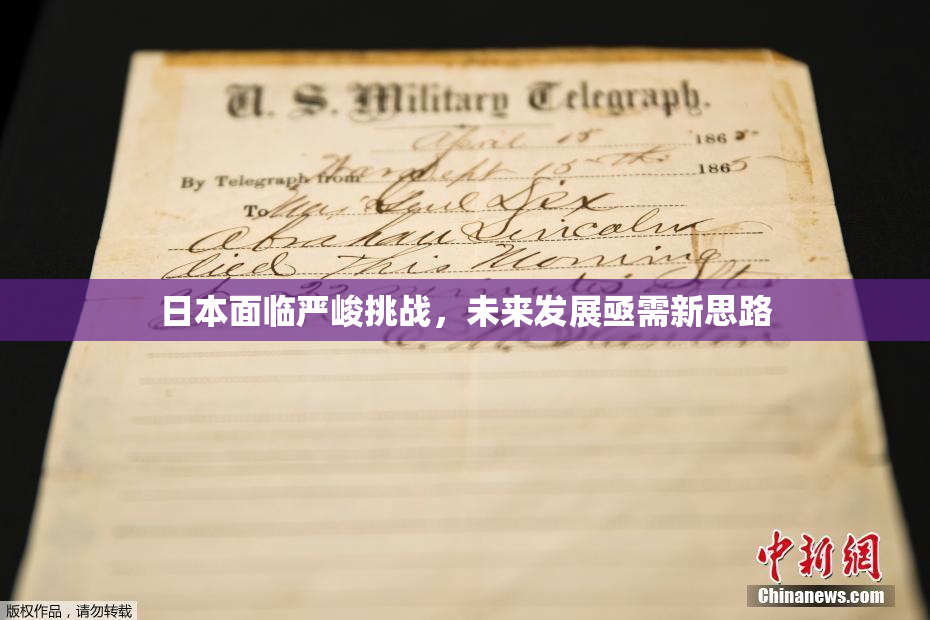 U. S. Military Telegraph.
April 15 1865
By Telegraph from War Dept 15th 1865
To Maj Genl Dix
Abraham Lincoln
died This Morning
at 22 minutes after
日本面临严峻挑战，未来发展亟需新思路
E. M. Stanton
中新网
Chinanews.com
版权作品，请勿转载